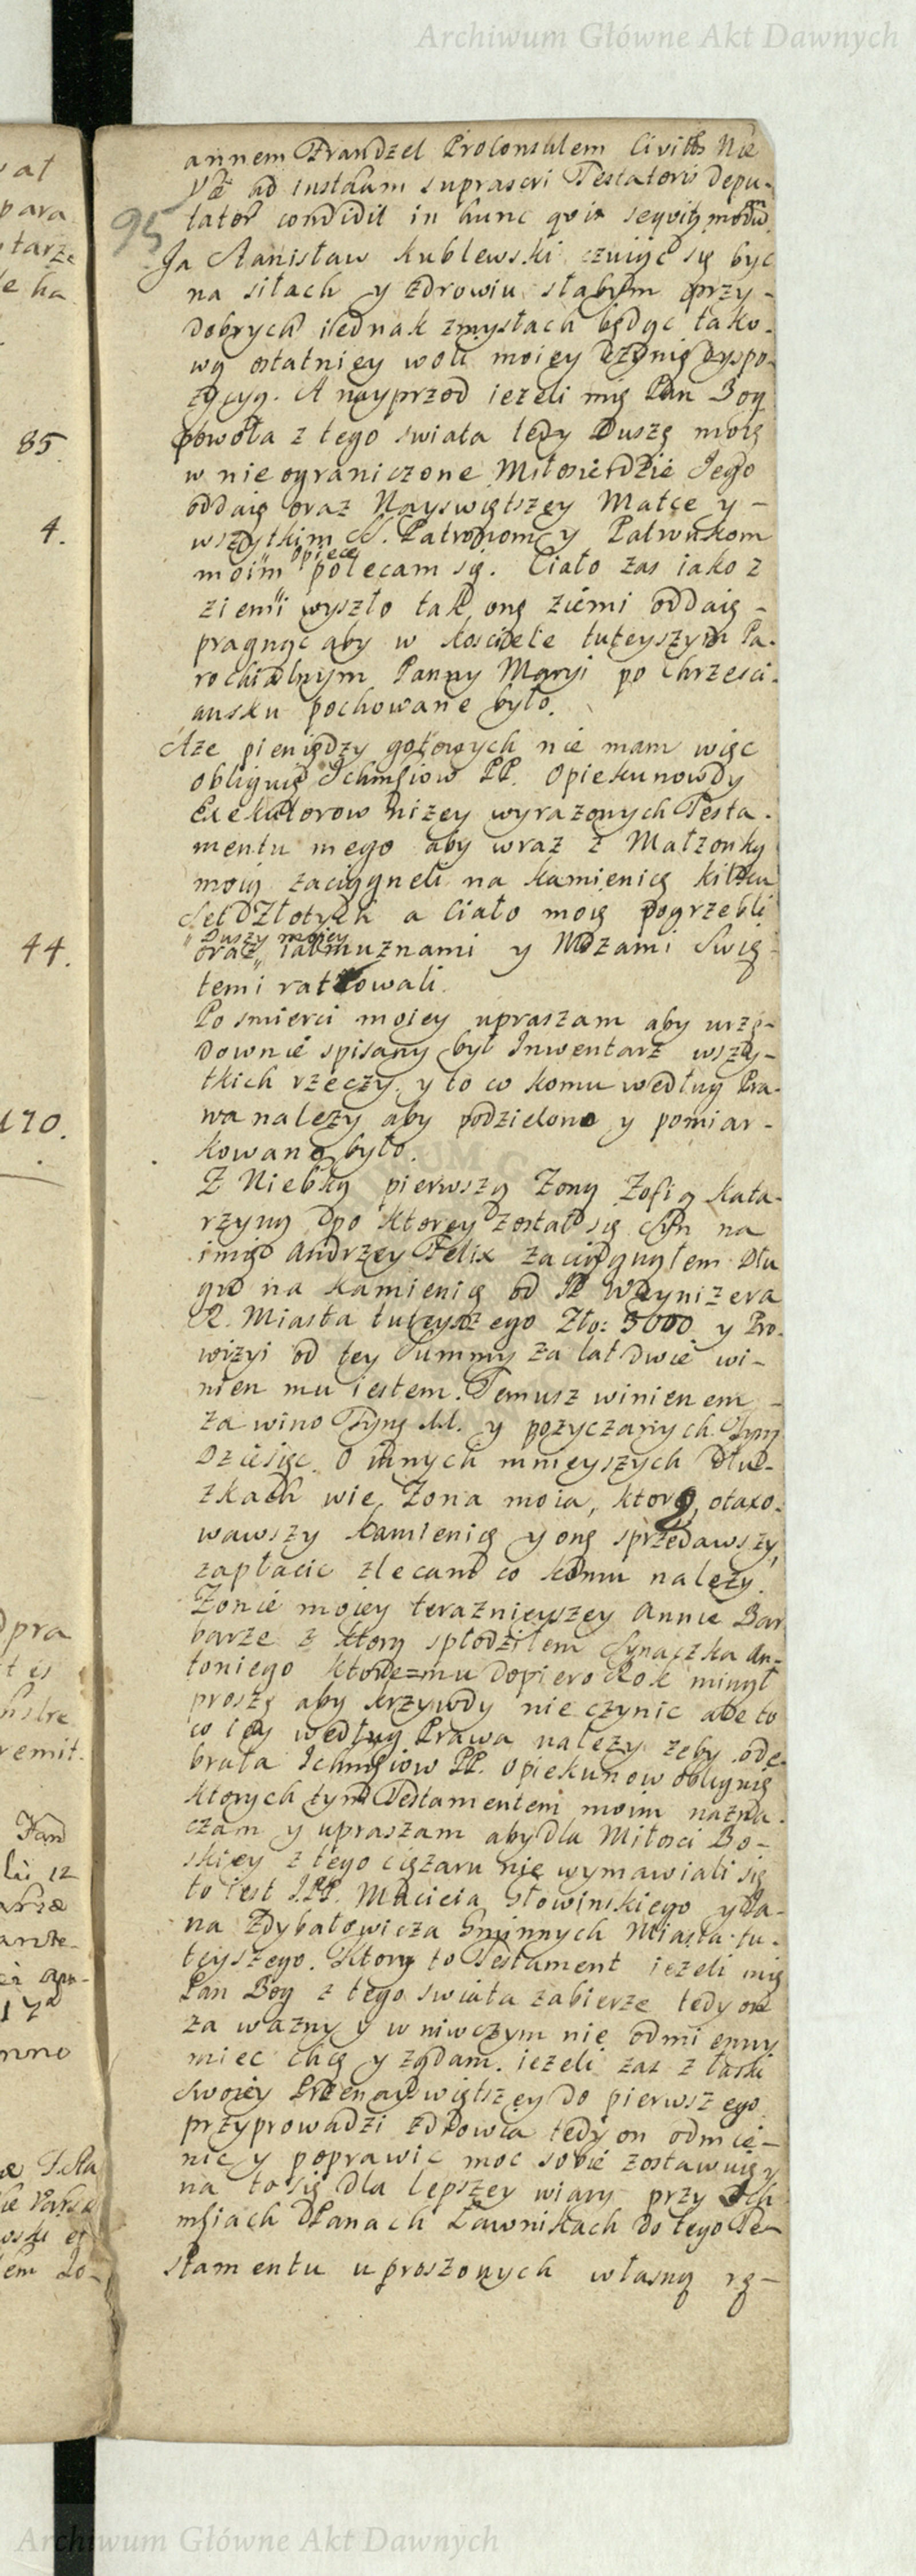 Archiwum Główne Akt Dawnych
annem Frandzel Proconsulem Civitts
ad instaam suprascri Testatoris depu-
tator condidit in hunc qvi seqvitz modu
95
Ja Stanisław Kublewski czuiąc się byc
na siłach y zdrowiu słabym przy-
dobrych iednak zmysłach będąc tako-
wą ostatniey woli moiey czynię dyspo-
zycyą. A nayprzod ieżeli mię Pan Bog
powoła z tego swiata tedy Duszę moię
w nieograniczone Miłosierdzie Jego
oddaię oraz Nayswiętszey Matce y -
wszytkim SS. Patronom y Patronkom
moim opiece polecam się. Ciało zas iako z
ziemi wyszło tak onę ziemi oddaię -
pragnąc aby w kosciele tuteyszym Pa-
rochialnym Panny Maryi po Chrzesci-
ansku pochowane było.
Aże pieniędzy gotowych nie mam więc
obliguię Ichmsiow PP. Opiekunow y
Exekutorow niżey wyrażonych Testa-
mentu mego aby wraz z Małżonką
moią zaciągneli na kamienicę kilku
Set Złotych a Ciało moię pogrzebli
oraz Duszy moiey iałmużnami y Mszami Swię-
temi ratowali.
Po smierci moiey upraszam aby urzę-
downie spisany był Inwentarz wszy-
tkich rzeczy, y to co komu według Pra-
wa należy aby podzielono y pomiar-
kowano było.
Z Niebką pierwszą Zoną Zofią Kata-
rzyną po ktorey został się Syn na
imię Andrzey Felix zaciągnąłem Dłu
gu na kamienicę od JP Waynizera
R. Miasta tuteyszego Zło: 3000 y Pro-
wizyi od tey Summy za lat dwie wi-
nien mu iestem. Temusz winienem -
za wino Tynf y pożyczanych Tynf
Dzieśięc. O innych mnieyszych dłu-
żkach wie Zona moia, ktorą, otaxo-
wawszy kamienicę y onę sprzedawszy,
zapłacic zlecam co komu należy.
Zonie moiey teraznieyszey Annie Bar
barze z ktorą spłodziłem Synaczka An-
toniego ktoremu dopiero Rok minął
proszę aby krzywdy nie czynic ale to
co iey według Prawa należy żeby ode-
brała Ichmsiow PP. Opiekunow obliguię
ktorych tym Testamentem moim nazna-
czam y upraszam aby dla Miłosci Bo-
skiey z tego cięzaru nie wymawiali się
to iest J.PP. Macieia Słowinskiego y Ja-
na Zdybałowicza Gminnych Miasta tu-
teyszego. Ktory to Testament ieżeli mię
Pan Bog z tego swiata zabierze tedy on
za ważny y w niwczym nie odmienny
miec chcę y żądam. ieżeli zas z łaski
Swoiey Przenayswiętszey do pierwszego
przyprowadzi zdrowia tedy on odmie-
nic y poprawic moc sobie zostawuię y
na to się dla lepszey wiary przy Ich
msiach Panach Ławnikach do tego Te-
stamentu uproszonych własną rę-
85.
4.
44.
170.
Archiwum Główne Akt Dawnych